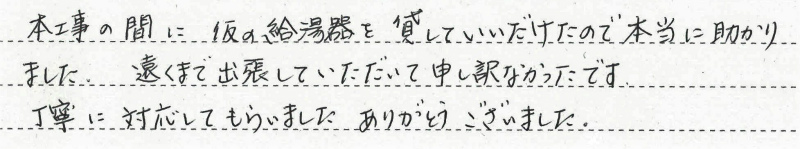 本工事の間に 仮の給湯器を貸していいだけたので本当に助かり
ました. 遠くまで出張していただいて申し訳なかったです.
丁寧に対応してもらいました ありがとうございました.